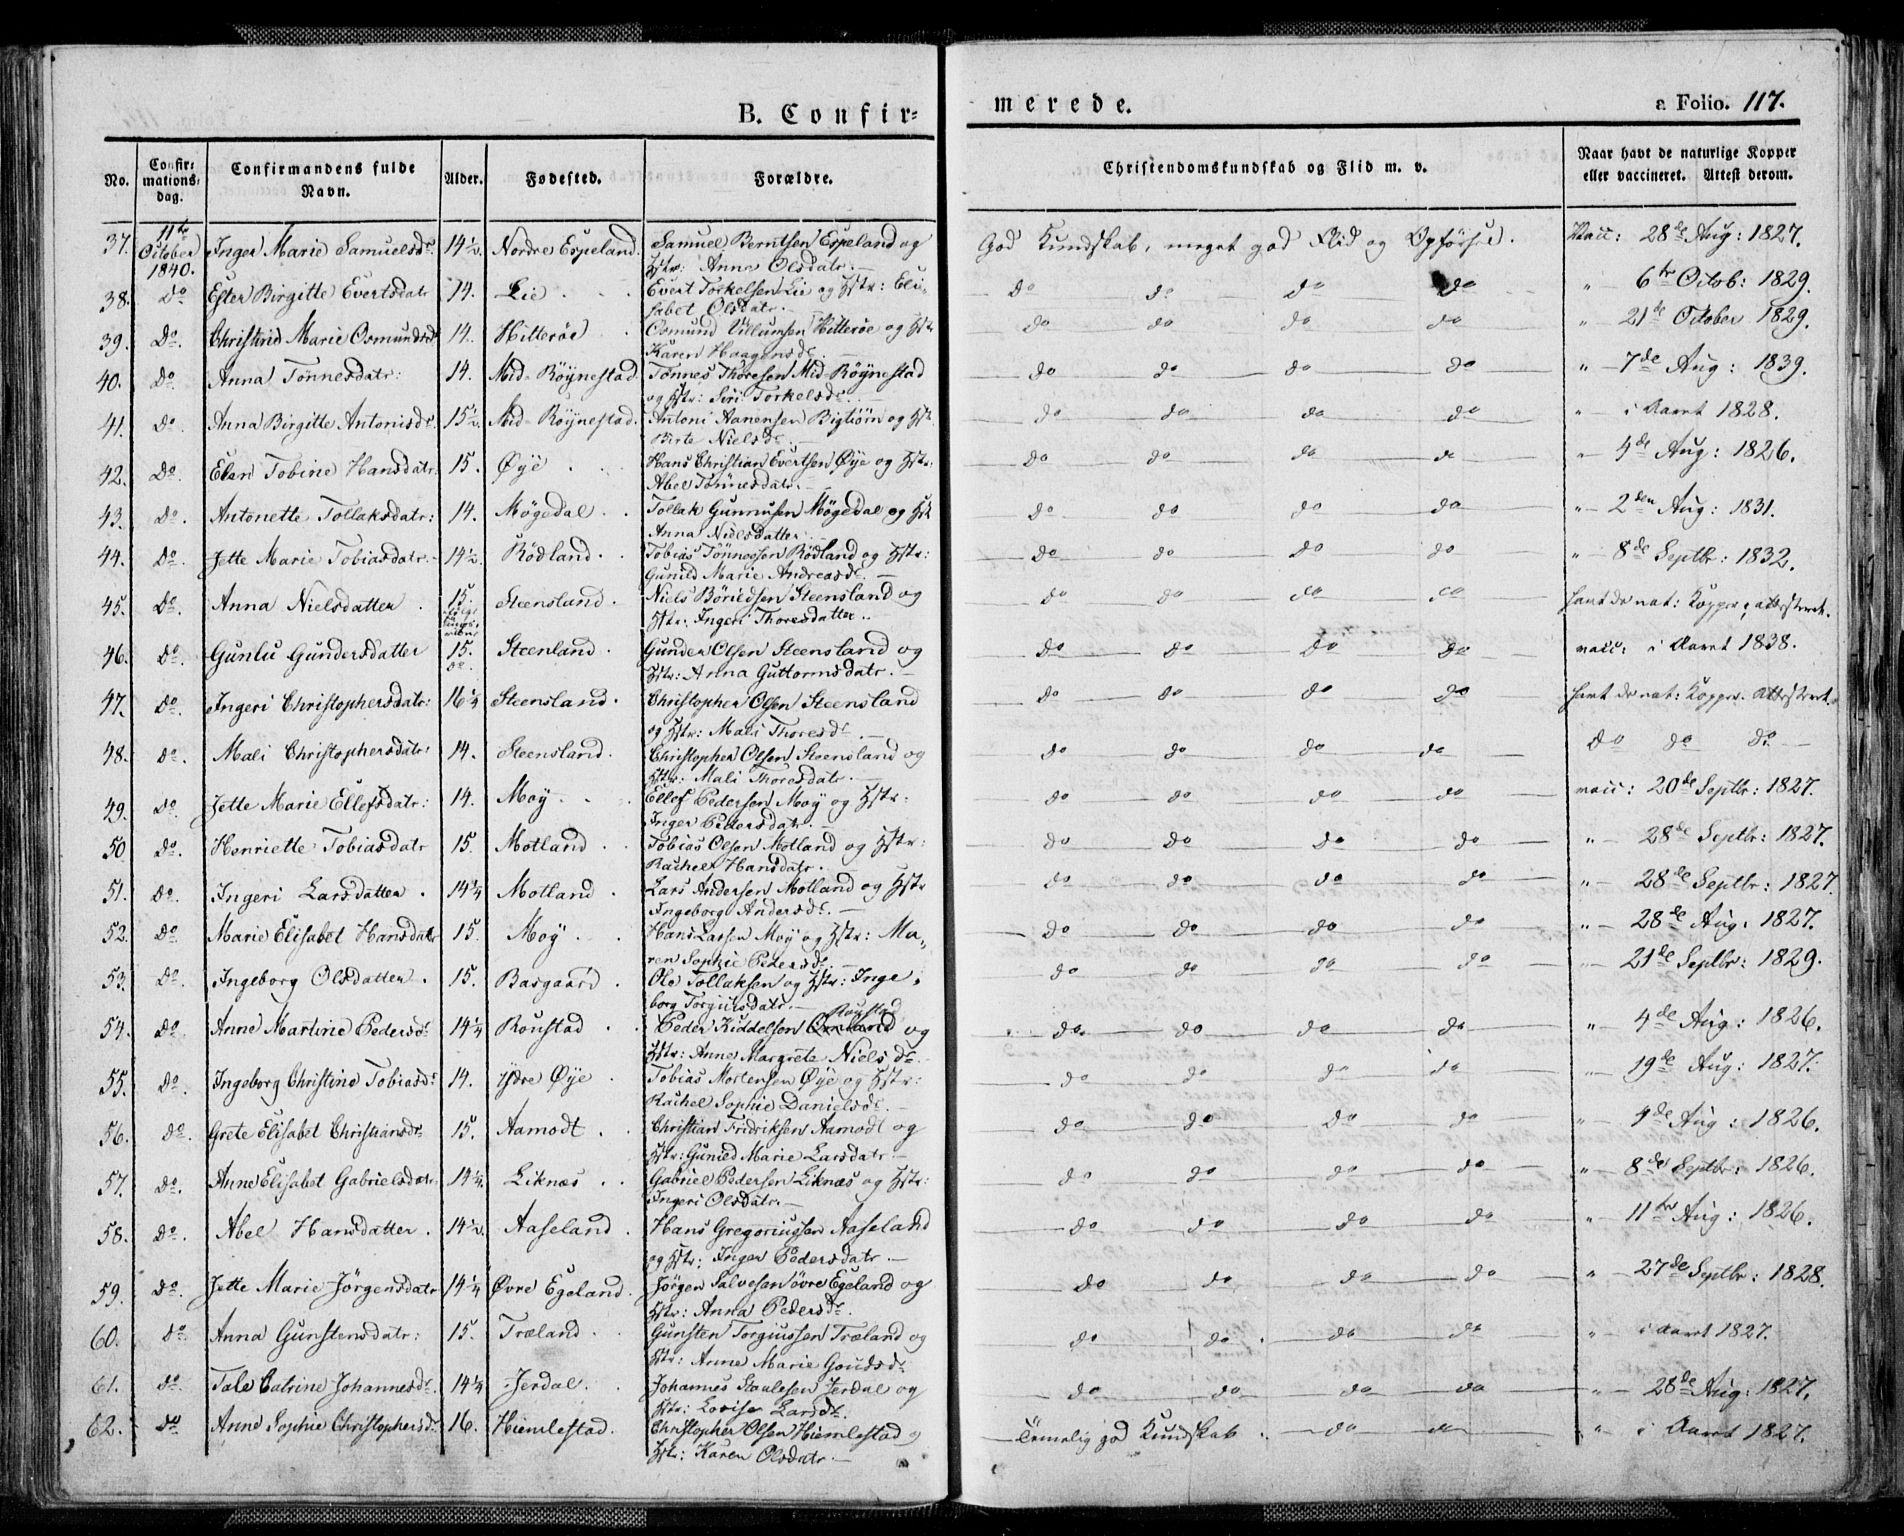 B. Confir=
merede.
a Folio. 117.
No.
Confir=
mations=
dag.
Confirmandens fulde
Navn.
Alder.
Fødested.
Forældre.
Christendomskundskab og Flid m. v.
Naar havt de naturlige Kopper
eller vaccineret. Attest derom.
37. 11te October 1840. Inger Marie Samuelsd: 14½ Nordre Espeland. Samuel Berntsen Espeland og God Kundskab, meget god Flid og Opførsel. Vacc: 28de Aug: 1827.
Hstr: Anna Olsdatr.
38. Do Ester Birgitte Evertsdatr 14. Lie Evert Torkelsen Lie og Hstr: Eli- do do do do " 6te Octob: 1829.
sabet Olsdatr.
39. Do. Christine Marie Osmundsd 14. Hitterøe Osmund Villumsen Hitterøe og Hstr do do do do " 21de October 1829.
Karen Haagensd:
40. Do Anna Tønnesdatr: 14. Mid-Røynestad Tønnes Thoresen Mid-Røynestad do do do do " 7de Aug: 1839.
og Hstr: Siri Torkelsd:
41. Do Anna Birgitte Antonisd: 15½ Mid-Røynestad. Antoni Aanensen Bigtiörn og Hstr do do do do " i Aaret 1828.
Birte Nielsd:
42. Do. Elen Tobine Hansdatr 15. Øye Hans Christian Evertsen Øye og Hstr: do do do do " 4de Aug: 1826.
Abel Tønnesdatr.
43. Do. Antonette Tollaksdatr: 14. Møgedal Tollak Gunnusen Møgedal og Hst do do do do " 2den Aug: 1831.
Anna Nielsdatter
44. Do. Jette Marie Tobiasdatr. 14½ Rødland Tobias Tønnessen Rødland og Hstr: do do do do " 8de Septbr: 1832.
Gunild Marie Andreasd:
45. Do Anna Nielsdatter 15. Steensland Niels Børildsen Steensland og do do do do havt de nat: Kopper, attesteret.
Hstr: Ingeri Thoresdatter.
46. Do Gunlu Gundersdatter 15. do Steenland Gunder Olsen Steensland og do do do do vacc: i Aaret 1838.
Hstr: Anna Guttormsdatr.
47. Do. Ingeri Christophersdatr: 16¼ Steensland. Christopher Olsen Steensland do do do do havt de nat: Kopper. Attesteret.
og Hstr: Mali Thoresd:
48. Do. Mali Christophersdatr: 14. Steensland. Christopher Olsen Steensland og do do do do do do do
Hstr: Mali Thoresdatr.
49. Do Jette Marie Ellefsdatr: 14. Moy Ellef Pedersen Moy og Hstr: do do do do vacc: 20de Septbr: 1827.
Inger Pedersdatr.
50 Do. Henriette Tobiasdatr 15. Motland Tobias Olsen Motland og Hstr: do do do do " 28de Septbr: 1827.
Rachel Hansdatr.
51. Do. Ingeri Larsdatter. 14¼ Motland Lars Andersen Motland og Hstr do do do do " 28de Septbr: 1827.
Ingeborg Andersd:
52. Do. Marie Elisabet Hansdatr 15. Moy Hans Larsen Moy og Hstr: Ma- do do do do " 28de Aug: 1827.
ren Sophie Pedersd:
53. Do Ingeborg Olsdatter. 15. Basgaard. Ole Tollaksen og Hstr: Inge- do do do do 21de Septbr: 1829.
borg Torgiusdatr.
54. Do Anne Martine Pedersd: 14¼ Roustad Peder Kiddelsen Omland Roustad og do do do do " 4de Aug: 1826.
Hstr: Anne Margrete Nielsd:
55. Do. Ingeborg Christine Tobiasd: 14. Ydre Øye Tobias Mortensen Øye og Hstr: do do do do " 19de Aug: 1827.
Rachel Sophie Danielsd:
56. Do. Grete Elisabet Christiansdr 15. Aamodt Christian Fridriksen Aamodt og do do do do " 4de Aug: 1826.
Hstr: Gunild Marie Larsdatr
57. Do. Anne Elisabet Gabrielsdatr 14¼ Liknæs Gabriel Pedersen Liknæs og Hstr: do do do do " 8de Septbr: 1826.
Ingeri Olsdatr.
58. Do. Abel Hansdatter. 14½ Aaseland Hans Gregoriussen Aaseland do do do do " 11te Aug: 1826.
og Hstr: Inger Pedersdatr.
59. Do. Jette Marie Jörgensdatr 14¼ Øvre Egeland. Jörgen Salvesen øvre Egeland og do do do do " 27de Septbr: 1828.
Hstr: Anna Pedersd:
60. Do Anna Gunstensdatr: 15. Træland Gunsten Torgiussen Træland og do do do do " i Aaret 1827.
Hstr: Anne Marie Goudsd:
61. Do. Tale Catrine Johannesd: 14¼ Jerdal. Johannes Staalesen Jerdal og do do do do " 28de Aug: 1827.
Hstr: Lovise Larsd:
62. Do Anne Sophie Christophersd: 16. Hiemlestad. Christopher Olsen Hiemlestad og Temelig god Kundskab. do do " i Aaret 1827.
Hstr: Karen Olsdatr.